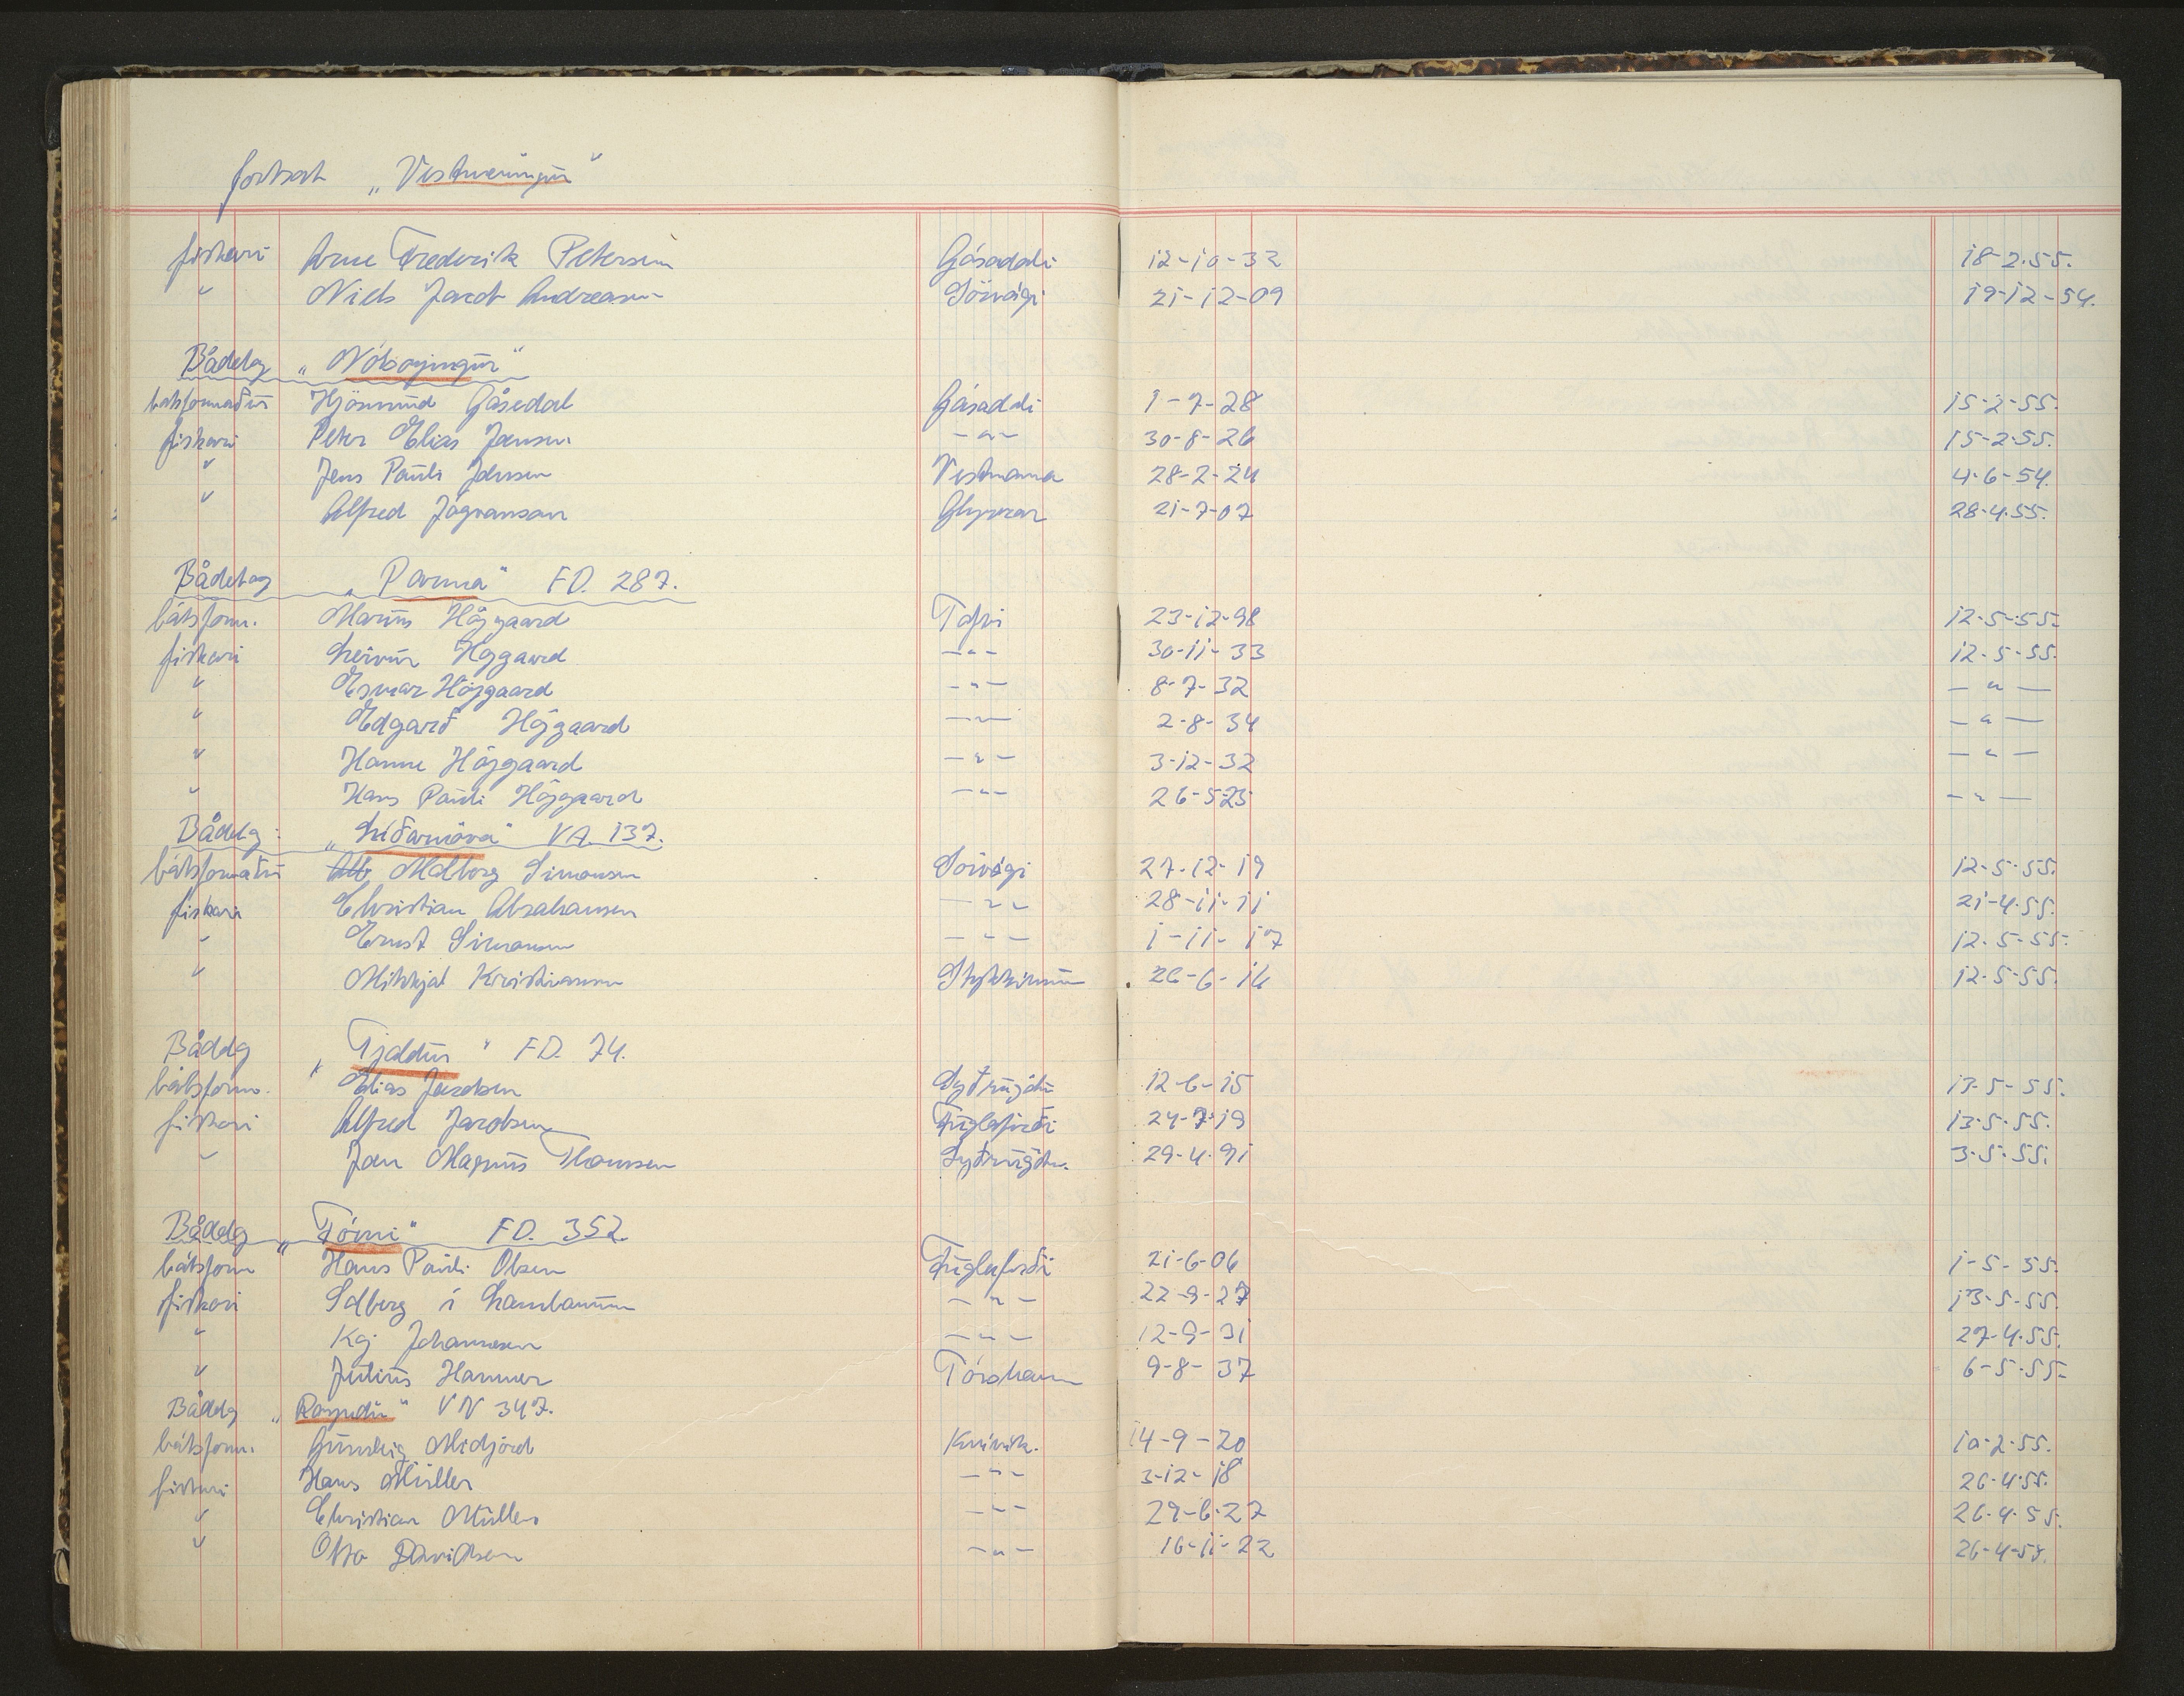 fortsat „Vestmeningur"
fiskari Arne Frederik Petersen Gásadali 12-10-32 18-2-55.
" Niels Jacob Andreasen Sörvági 21-12-09 19-12-54.
Bådelag „Nólsoyingur"
bátsformaður Hjörmund Gåsedal Gásadali 1-7-28 15-2-55.
fiskari Peter Elias Jensen -"- 30-8-26 15-2-55.
" Jens Pauli Joensen Vestmanna 28-2-24 4-6-54.
" Alfred Jógvansson Glyvrar 21-7-07 28-4-55.
Bådelag „Parma" FD. 287.
bátsform. Marius Højgaard Toftir 23-12-98 12-5-55.
fiskari Leivur Højgaard -"- 30-11-33 12-5-55.
" Esmar Højgaard -"- 8-7-32 -"-
" Edgard Højgaard -"- 2-8-34 -"-
" Hanne Højgaard -"- 3-12-32 -"-
" Hans Pauli Højgaard -"- 26-5-25 -"-
Bådelag: VA. 137.
bátsformaður Malberg Simonsen Sörvági 27-12-19 12-5-55.
fiskari Christian Abrahamsen -"- 28-11-11 21-4-55.
" Ernst Simonsen -"- 1-11-17 12-5-55.
" Mikkjal Kristiansen 26-6-16 12-5-55.
Bådelag „Tjaldur" FD. 74.
bátsform. Elias Jacobsen Syðrugöta 12-6-15 13-5-55.
fiskari Alfred Jacobsen Fuglafirði 24-7-19 13-5-55.
" Jan Magnus Thomsen Syðrugöta. 29-4-91 3-5-55.
Bådelag „Tórni" FD. 352.
bátsform Hans Pauli Olsen Fuglafirði 21-6-06 1-5-55.
fiskari Solberg í Lambanum -"- 22-9-27 13-5-55.
" Kaj Johannesen -"- 12-9-31 27-4-55.
" Julius Hammer Tórshavn 9-8-37 6-5-55.
Bådelag „Royndin" VN 347.
bátsform. Gunleig Midjord Kvívik. 14-9-20 10-2-55.
fiskari Hans Müller -"- 3-12-18 26-4-55.
" Christian Müller -"- 29-6-27 26-4-55.
" Otto Davidsen -"- 16-11-22 26-4-55.